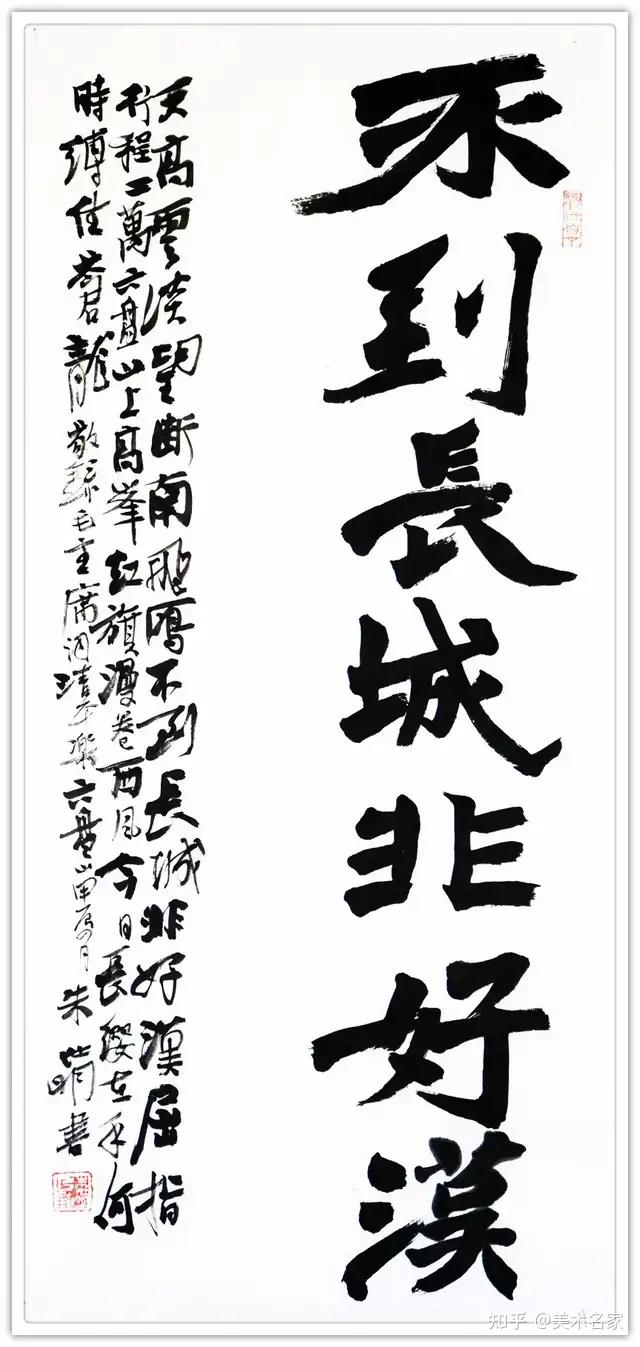 不到長城非好漢
天高雲淡望斷南飛鴈不到長城非好漢屈指
行程二萬六盤山上高峯紅旗漫卷西風今日長纓在手何
時縛住蒼龍敬錄毛主席詞清平樂六盤山 月朱 書
知乎 @美术名家